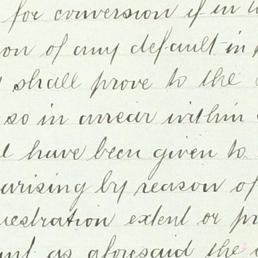 for conversion if in
on of any default in
shall prove to the
so in arrear within
have been given to
arising by reason of
uestration extent or pr
as aforesaid the